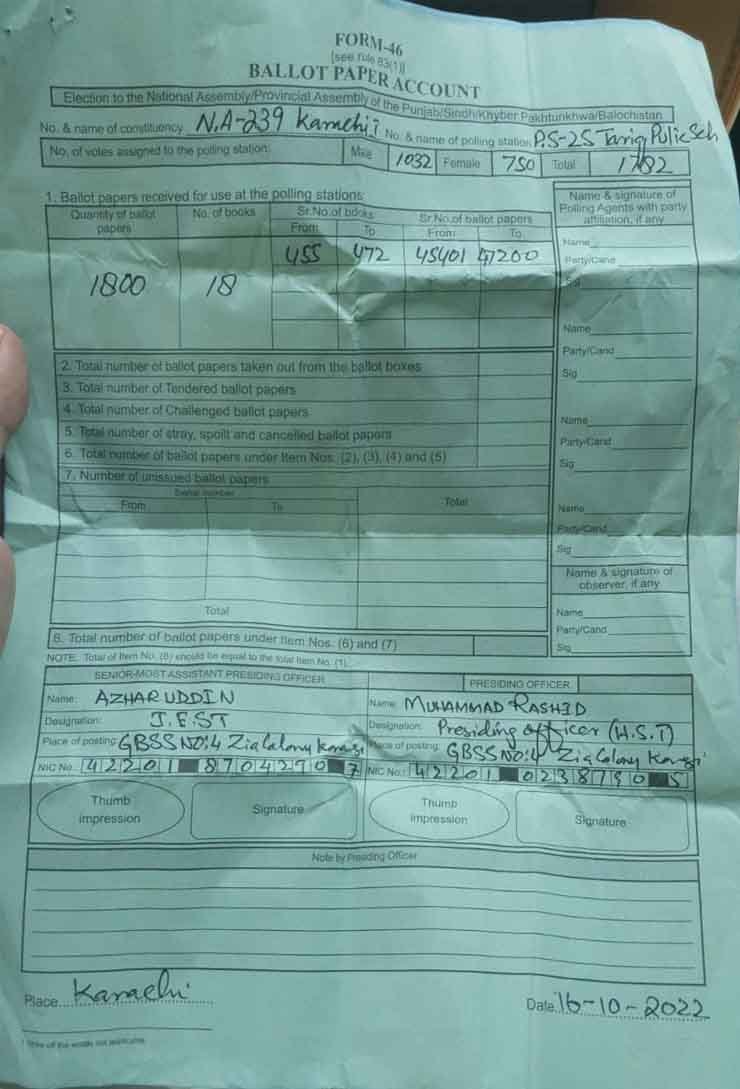 FORM-46
[see rule 83(1)]
BALLOT PAPER ACCOUNT
Election to the National Assembly/Provincial Assembly of the Punjab/Sindh/Khyber Pakhtunkhwa/Balochistan
No. & name of constituency N.A-239 Karachi No. & name of polling station P.S-25 Tariq Pulic Sch
No. of votes assigned to the polling station: Male 1032 Female 750 Total 1782
1. Ballot papers received for use at the polling stations
Quantity of ballot papers No. of books Sr.No.of books Sr.No.of ballot papers
From To From To
1800 18 455 472 45401 47200
2. Total number of ballot papers taken out from the ballot boxes
3. Total number of Tendered ballot papers
4. Total number of Challenged ballot papers
5. Total number of stray, spoilt and cancelled ballot papers
6. Total number of ballot papers under Item Nos. (2), (3), (4) and (5)
7. Number of unissued ballot papers
Serial number
From To Total
Total
8. Total number of ballot papers under Item Nos. (6) and (7)
NOTE: Total of Item No. (8) should be equal to the total Item No. (1).
Name & signature of
Polling Agents with party
affiliation, if any
Name
Party/Cand
Sig
Name
Party/Cand
Sig
Name
Party/Cand
Sig
Name
Party/Cand
Sig
Name & signature of
observer, if any
Name
Party/Cand
Sig
SENIOR-MOST ASSISTANT PRESIDING OFFICER
Name: AZHARUDDIN
Designation: J.E.ST
Place of posting: GBSS NO:4 Zia Colony Korangi
NIC No. 42201 8704290 7
Thumb impression Signature
PRESIDING OFFICER
Name: MUHAMMAD RASHID
Designation: Presiding officer (H.S.T)
Place of posting: GBSS NO:4 Zia Colony Korangi
NIC No.: 42201 0238790 5
Thumb impression Signature
Note by Presiding Officer
Place Karachi
Date 16-10-2022